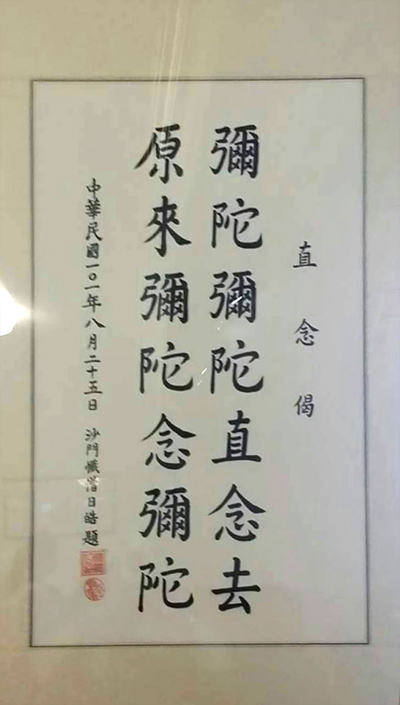 直念偈
彌陀彌陀直念去
原來彌陀念彌陀
中華民國一〇一年八月二十五日 沙門懺僧日皓題